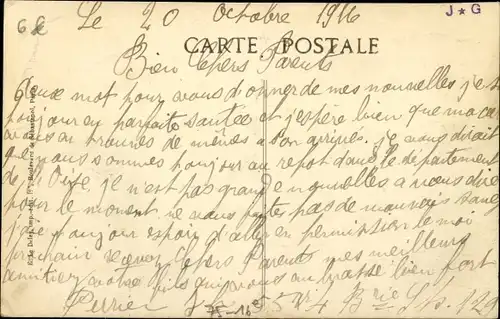 6 €
Le 20 Octobre 1916
J ★ G
CARTE POSTALE
Bien Chers Parents
Deux mot pour vous donner de mes nouvelles je suis
toujour au parfaite santee et j'espère bien que ma ca
vous trouves de mêmes a son arrivés. je vous dirait
que nous sommes toujour au repot dans le département
de l'Oise, je n'est pas grand nouvelles a vous dire
pour le moment ne vous pas de mauvais sang
j'ai toujour espoir d'aller en permission le moi
prochain Recevez Chers Parents mes meilleurs
amitier votre fils qui vous embrasse bien fort
Perrier 4 Bie 129